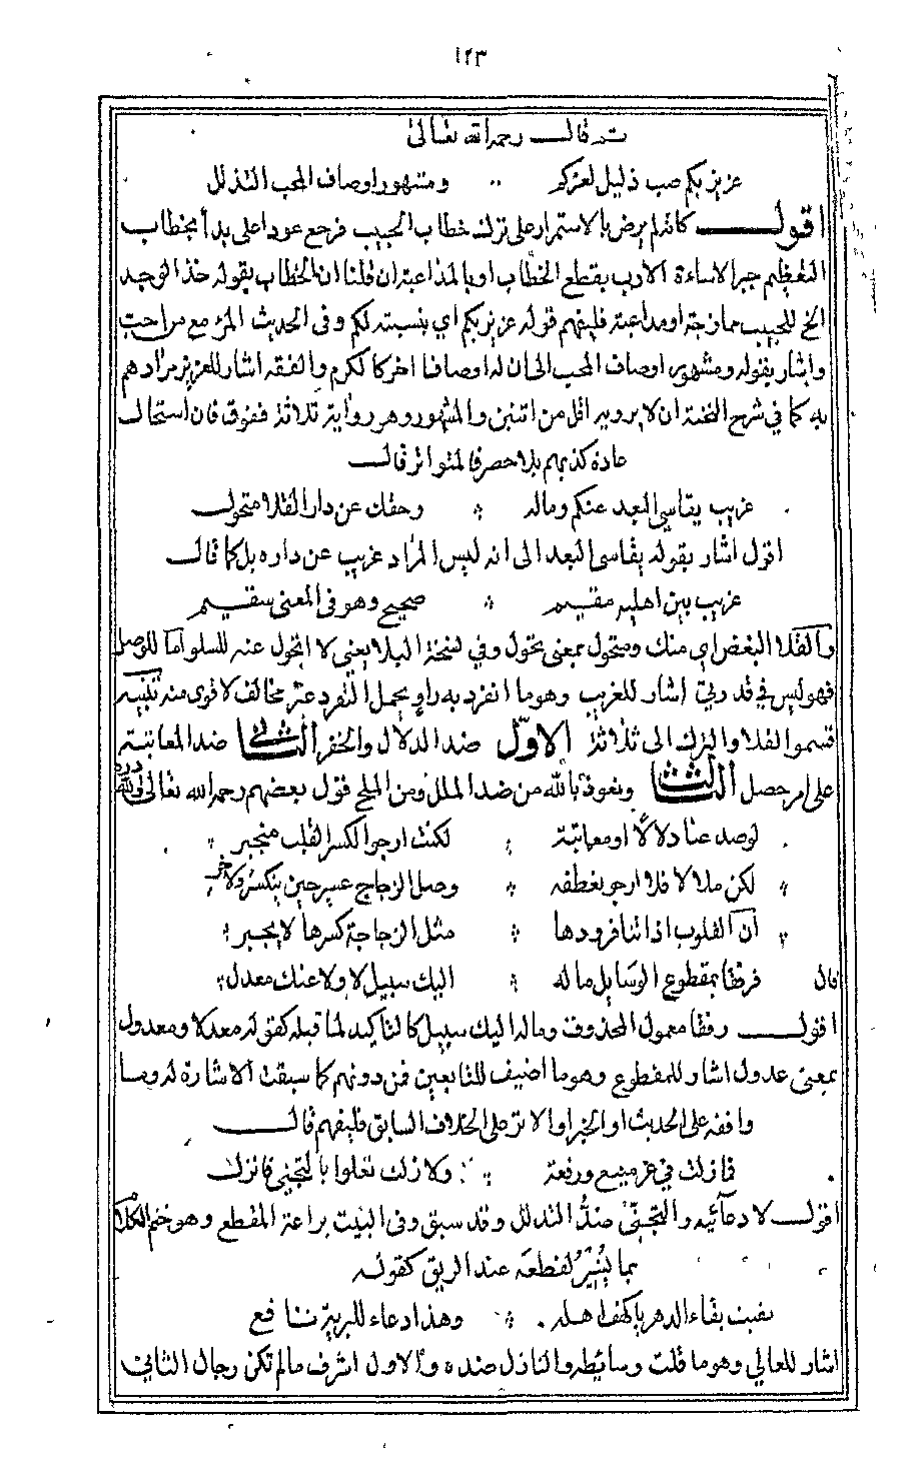 ١٢٣
ثم قال رحمه الله تعالى
عزيز بكم صب ذليل لعزكم ∴ ومشهور اوصاف المحب التذلل
اقول كانه لم يرض بالاستمرار على ترك خطاب الحبيب فرجع عودا على بدأ بخطاب
التعظيم جبرا لاساءة الادب بقطع الخطاب او بالمداعبة ان قلنا ان الخطاب بقوله خذ الوجد
الخ للحبيب ممازجة او مداعبة فليفهم قوله عزيز بكم اي بنسبته لكم وفى الحديث المرء مع من احب
واشار بقوله ومشهور اوصاف المحب الى ان له اوصافا اخر كالكرم والفقه اشار للعزيز مرادهم
به كما في شرح النخبة ان لا يرويه اقل من اثنين والمشهور وهو رواية ثلاثة ففوق فان استحال
عادة كذبهم بلا حصر فالمتواتر قال
غريب يقاسي البعد عنكم وماله ∴ وحقك عن دار القلا متحول
اقول اشار بقوله يقاسي البعد الى انه ليس المراد غريب عن داره بل كما قال
غريب بين اهليه مقيم ∴ صحيح وهو فى المعنى سقيم
والقلا البغض اي منك ومتحول بمعنى تحول وفي نسخة البلا يعني لا اتحول عنه للسلو اما للوصل
فهو ليس في قدرتي اشار للغريب وهو ما انفرد به راو يحمل التفرد عثر مخالف لاقوى منه تنبيه
قسموا القلا والترك الى ثلاثة الاول صد الدلال والخفر الثاني صد المعاتبة
على امر حصل الثالث ونعوذ بالله من صد الملل ومن الملح قول بعضهم رحمه الله تعالى ولله دره
لو صد عنا دلالا او معاتبة ∴ لكنت ارجوا لكسر القلب منجبر
لكن ملالا فلا ارجو بعطفه ∴ وصل الزجاج عسير حين ينكسر ولاخر
ان القلوب اذا تنافر ودها ∴ مثل الزجاجة كسرها لا يجبر
قال فرفقا بمقطوع الوسايل ماله ∴ اليك سبيل لا ولا عنك معدل
اقول رفقا معمول المحذوف وماله اليك سبيل كالتاكيد لما قبله كقوله معدلا ومعدول
بمعنى عدول اشار للمقطوع وهو ما اضيف للتابعين فمن دونهم كما سبقت الاشارة له وما
وافقه على الحديث او الخبر او الاثر على الخلاف السابق فليفهم قال
فما زلت في عز منيع ورفعة ∴ ولا زلت تعلوا بالتجني فانزل
اقول لا دعائيه والتجنى ضد التدلل وقد سبق وفى البيت براعة المقطع وهو ختم الكلام
بما يشير لقطعه عند الريق كقوله
بقيت بقاء الدهر يا كهف اهله ∴ وهذا دعاء للبرية نافع
اشار للعالي وهو ما قلت وسائطه والنازل ضده والاول اشرف مالم تكن رجال الثاني